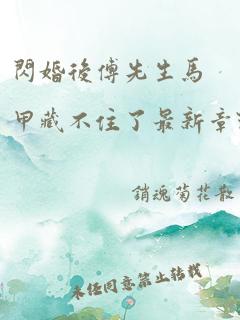 閃婚後傅先生馬
甲藏不住了最新章
銷魂菊花散
未經同意禁止轉載